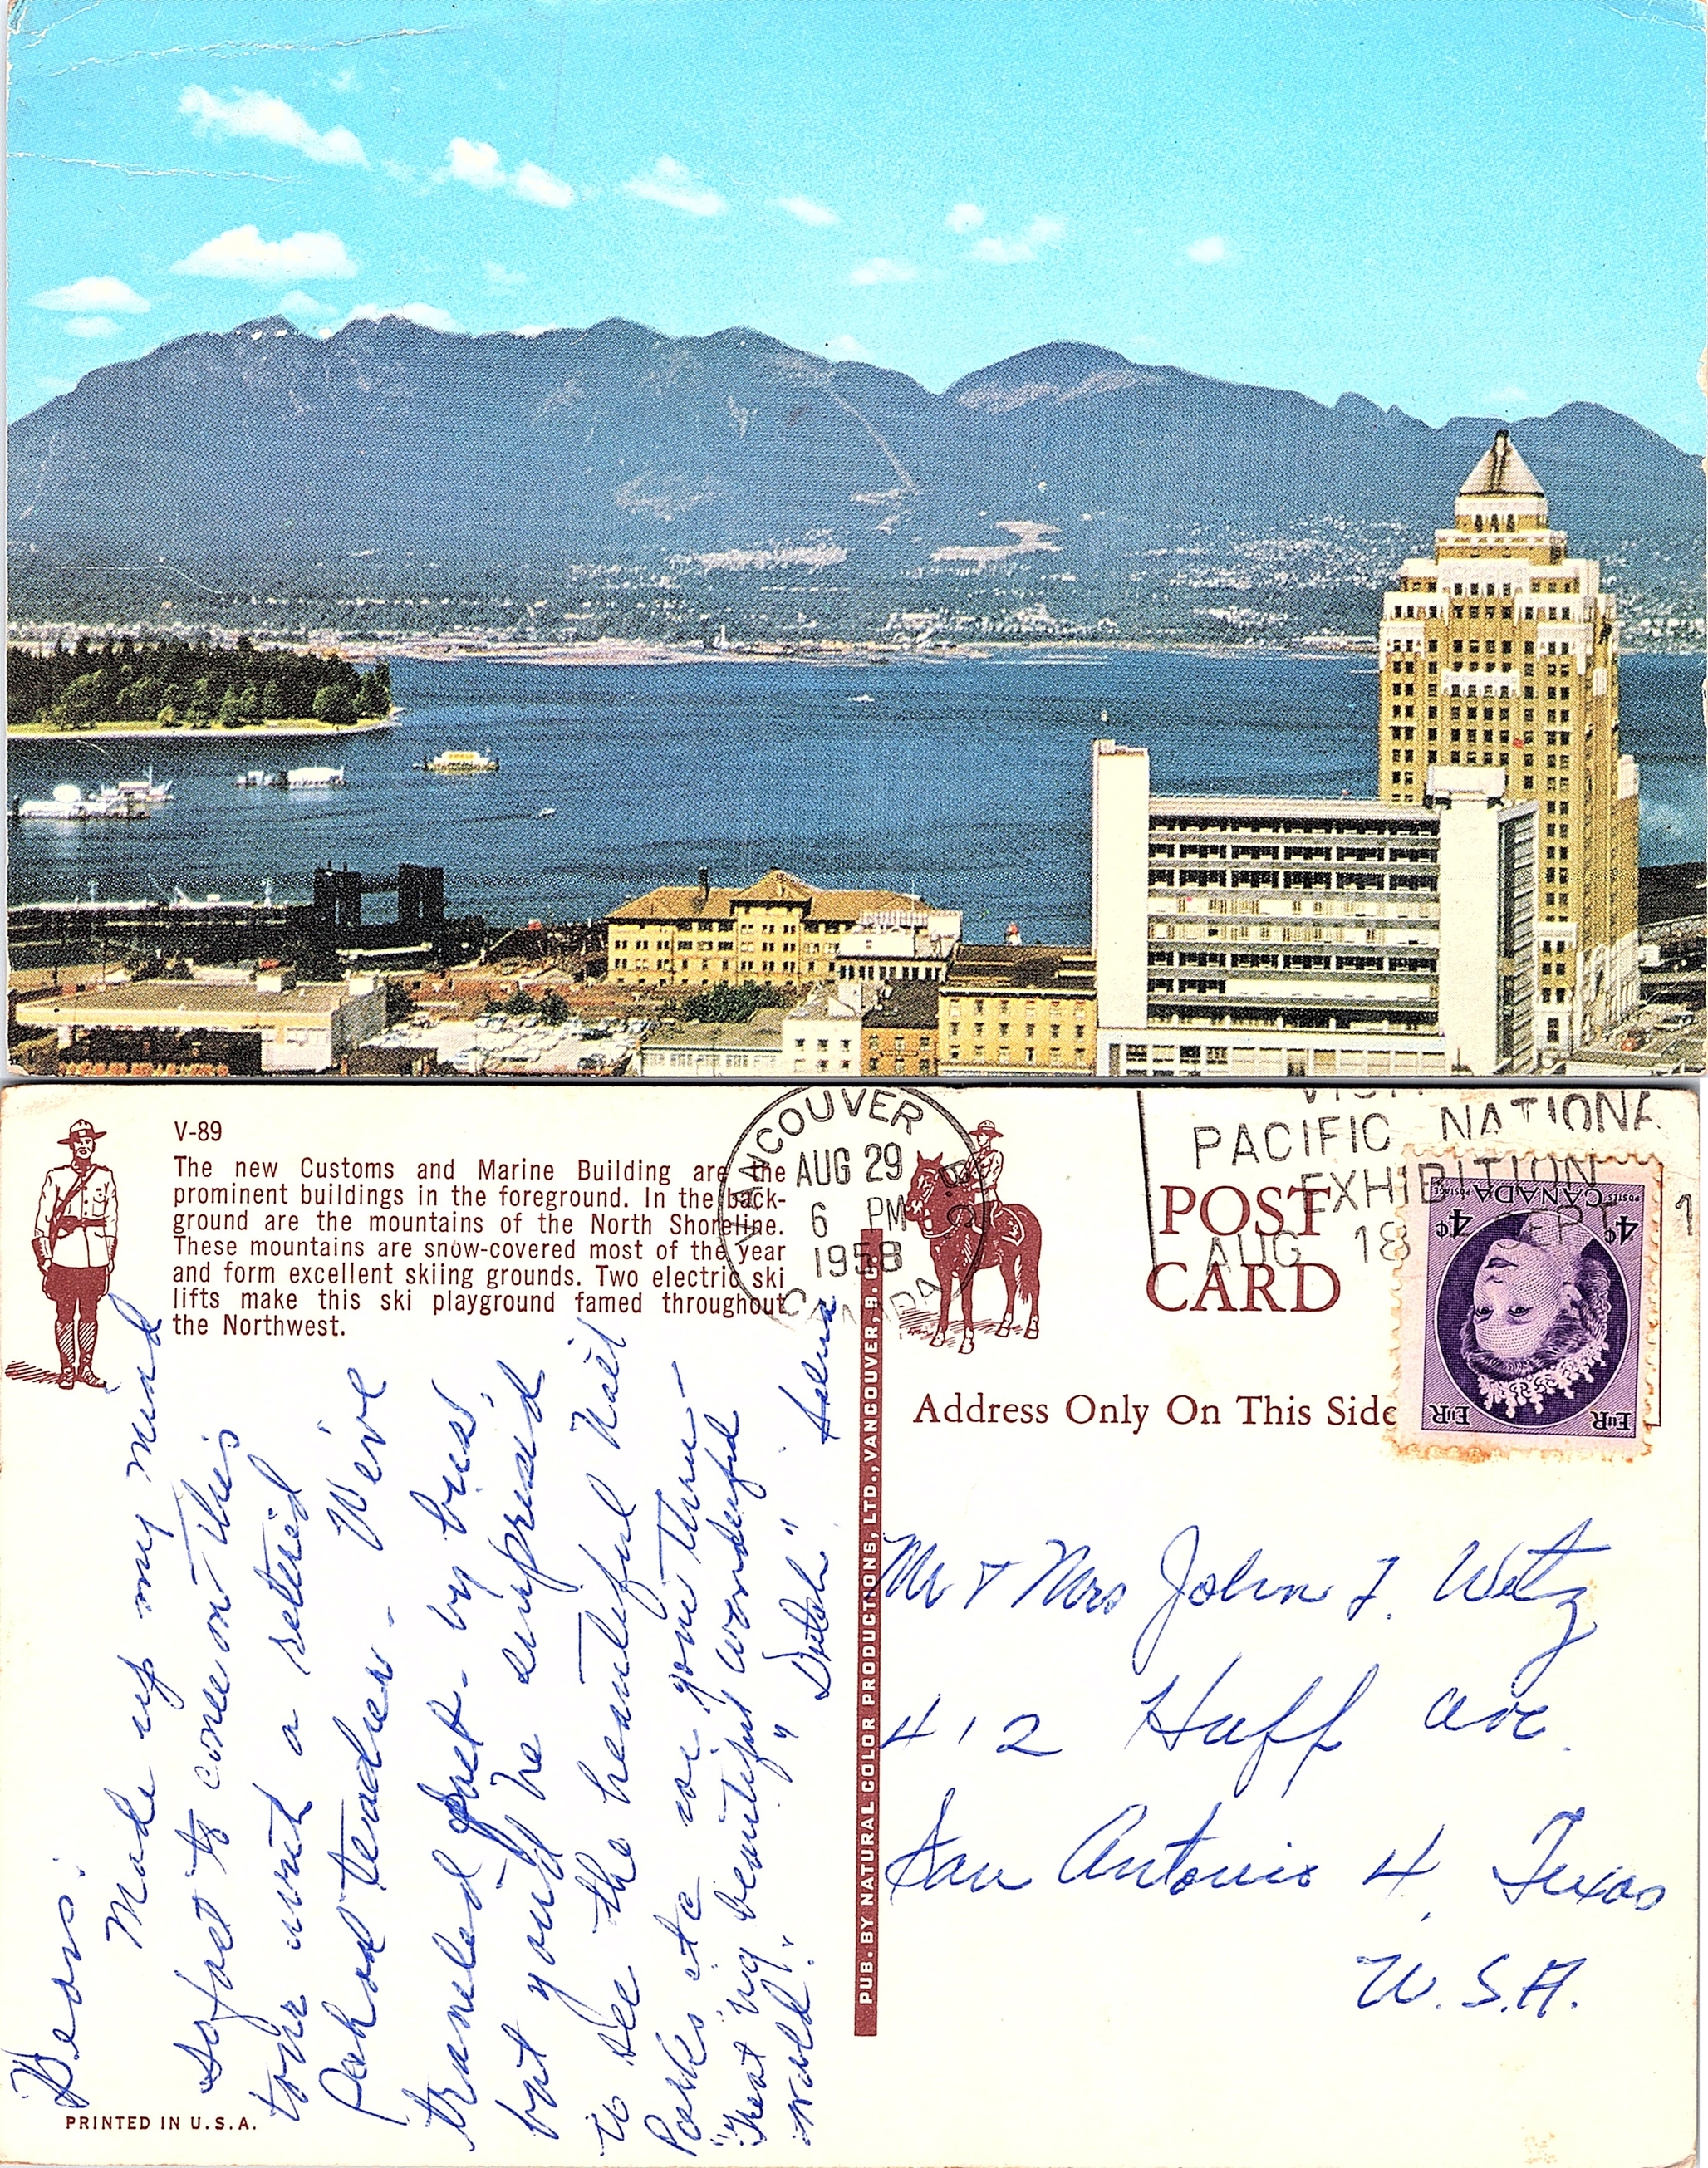 V-89
The new Customs and Marine Building are the
prominent buildings in the foreground. In the back-
ground are the mountains of the North Shoreline.
These mountains are snow-covered most of the year
and form excellent skiing grounds. Two electric ski
lifts make this ski playground famed throughout
the Northwest.
VANCOUVER
AUG 29
6 PM
1958
B.C.
CANADA
PACIFIC NATIONA
EXHIBITION
AUG 18 SEPT 1
POST
CARD
Address Only On This Side
CANADA
POSTES POSTAGE
4¢ 4¢
EIIR EIIR
Made up my mind
so fast to come on this
tour with a retired
School teacher. We've
traveled fast - by bus,
but you'd be surprised
to see the beautiful Nat'l
Parks etc we gone thru -
"Treat'ing beautiful wonderful
world."
" Dutch "
PUB. BY NATURAL COLOR PRODUCTIONS, LTD., VANCOUVER, B.C.
Mr & Mrs John F. Wetz
412 Huff Ave.
San Antonio 4, Texas
U.S.A.
PRINTED IN U.S.A.